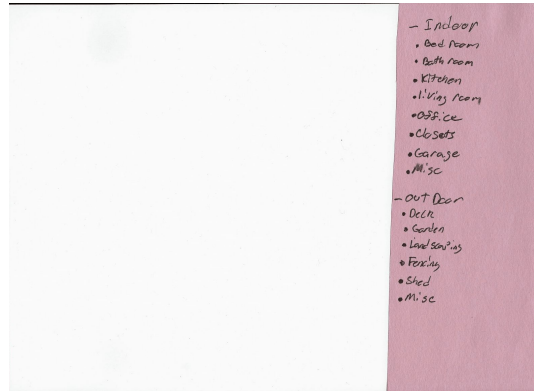 - Indoor
• Bed room
• Bath room
• Kitchen
• living room
• Office
• Closets
• Garage
• Misc
- out Door
• Deck
• Garden
• Landscaping
• Fencing
• Shed
• Misc